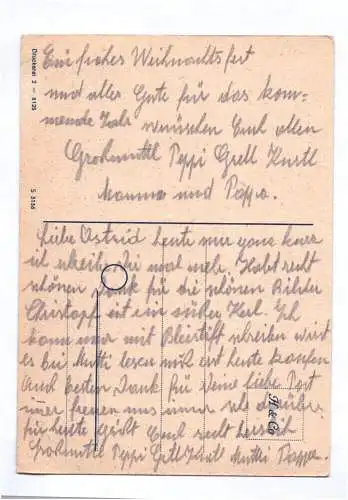 Ein frohes Weihnachtsfest
und alles Gute für das kom-
mende Jahr wünschen Euch allen
Großmuttl Peppi Gretl Kurtl
Mamma und Pappa.
Liebe Astrid heute nur ganz kurz
ich schreibe Dir mal mehr. Habt recht
schönen Dank für die schönen Bilder
Christoph ist ein süßer Kerl. Ich
kann nur mit Bleistift schreiben wird
es bei Mutti lesen muß erst heute kaufen
Auch besten Dank für Deine liebe Post
wir freuen uns immer sehr darüber
für heute grüßt Euch recht herzlich
Großmuttl Peppi Gretl Kurtl Mutti Pappa
Druckerei 2 — 8125
S 3136
H & Co